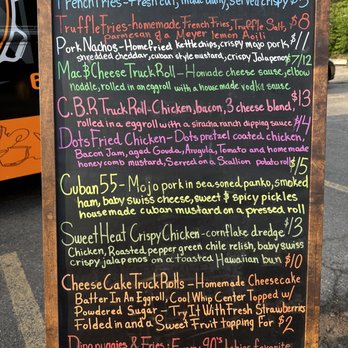 French Fries - Fresh cut, made daily, served crispy $5
Truffle Fries - homemade French Fries, Truffle Salt, $8
Parmesan & a Meyer lemon Aoili
Pork Nachos - Homefried kettle chips, crispy mojo pork $11
shredded cheddar, cuban style mustard, crispy Jalapeños
Mac & Cheese Truck Roll - Homade cheese sause, elbow $7/12
noodle, rolled in an eggroll with a house made vodka sauce
C.B.R Truck Roll - Chicken, bacon, 3 cheese blend, $13
rolled in a eggroll with a siracha ranch dipping sauce
Dots Fried Chicken - Dots pretzel coated chicken, $14
Bacon Jam, aged Gouda, Arugula, Tomato and homemade
honey comb mustard, Served on a Scallion potato roll
Cuban 55 - Mojo pork in seasoned, panko, smoked $15
ham, baby swiss cheese, sweet & spicy pickles
house made cuban mustard on a pressed roll
Sweet Heat Crispy Chicken - cornflake dredge $13
Chicken, Roasted pepper green chile relish, baby swiss
crispy jalapenos on a toasted Hawaiian bun
Cheese Cake Truck Rolls - Homemade Cheesecake $10
Batter In An Eggroll, Cool Whip Center Topped w/
Powdered Sugar - Try It With Fresh Strawberries
Folded in and a Sweet Fruit topping For $2
Dino nuggies & Fries: Every 90's babies favorite